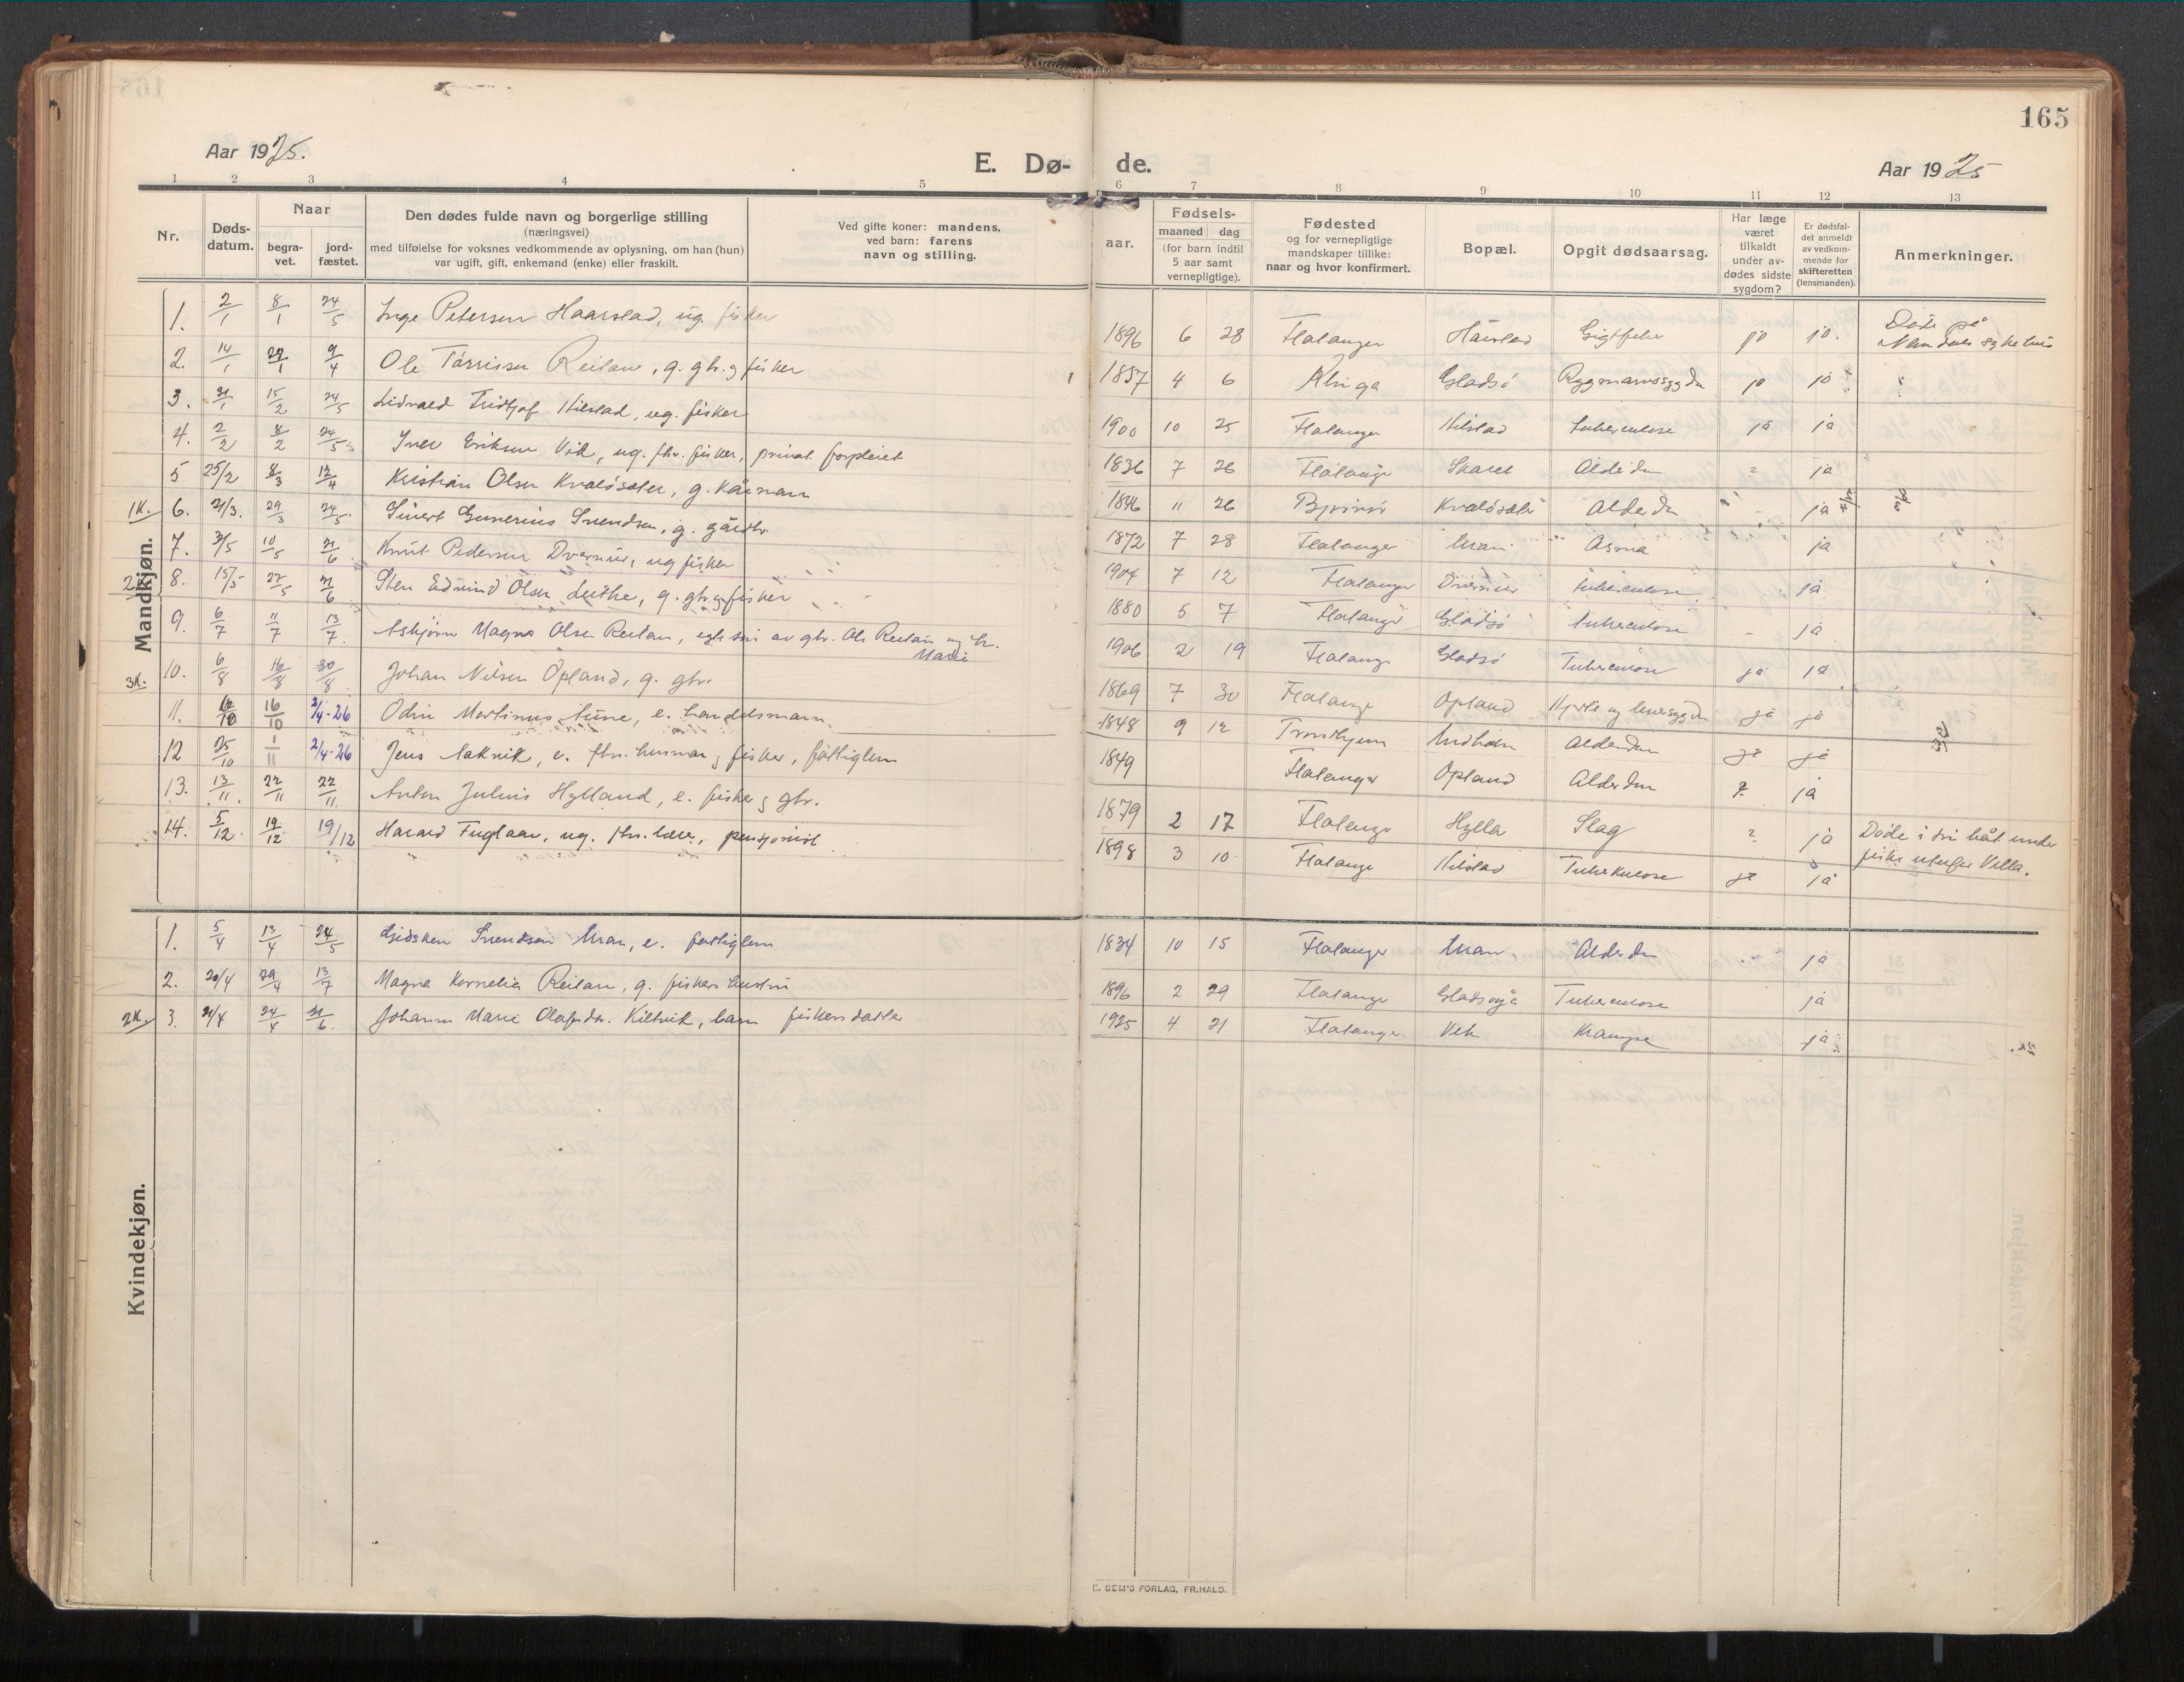 165
Aar 1925.
E. Dø- de.
Aar 1925
1 2 3 4 5 6 7 8 9 10 11 12 13
Nr.
Døds-
datum.
Naar
begra-
vet.
jord-
fæstet.
Den dødes fulde navn og borgerlige stilling
(næringsvei)
med tilføielse for voksnes vedkommende av oplysning, om han (hun)
var ugift, gift, enkemand (enke) eller fraskilt.
Ved gifte koner: mandens,
ved barn: farens
navn og stilling.
aar.
Fødsels-
maaned dag
(for barn indtil
5 aar samt
vernepligtige).
Fødested
og for vernepligtige
mandskaper tillike:
naar og hvor konfirmert.
Bopæl.
Opgit dødsaarsag.
Har læge
været
tilkaldt
under av-
dødes sidste
sygdom?
Er dødsfal-
det anmeldt
av vedkom-
mende for
skifteretten
(lensmanden).
Anmerkninger.
Mandkjøn.
1. 2/1 8/1 24/5 Inge Petersen Haarstad, ug. fisker 1896 6 28 Flatanger Haarstad Gigtfeber jo jo. Døde på
Namdals sykehus
2. 14/1 9/4 Ole Tørrissen Reitan, g. gbr. og fisker 1857 4 6 Klinga Gladsø Rygmarvssygdom jo jo
3. 31/1 15/2 24/5 Fridtjof Hilstad, ug. fisker 1900 10 25 Flatanger Hilstad tuberculose ja ja
4. 2/2 8/2 24/5 Iver Eriksen Vik, ug. fhv. fisker, privat forpleiet 1836 7 26 Flatanger Alderdom ? ja
5 25/2 8/3 12/4 Kristian Olsen Kvaløsæter, g. kårmann 1846 11 26 Bjørnør Kvaløsæter Alderdom - ja
1K. 6. 21/3. 29/3 24/5 Sivert Gunerius Svendsen, g. gårdbr. 1872 7 28 Flatanger Uran Asma ja
7. 3/5 10/5 21/6 Knut Pedersen Dversnes, ug fisker 1904 7 12 Flatanger Dversnes tuberculose ja
8. 15/5 22/5 21/6 Sten Edvind Olsen, g. gbr. og fisker 1880 5 7 Flatanger Gladsø tuberculose - ja
9. 6/7 11/7 13/7 Asbjørn Magne Olsen Reitan, egte søn av gbr. Ole Reitan og h.
Marie 1906 2 19 Flatanger Gladsø Tuberculose ja ja
3K. 10. 6/8 16/8 30/8 Johan Nilsen Opland, g. gbr. 1869 7 30 Flatanger Opland Hjerte og ja ja
11. 16/10 2/4-26 Odin Martinus Aune, e. handelsmann 1848 9 12 Trondhjem Alderdom ja ja
12 25/10 1/11 2/4-26 Jens Lakvik, e. fhv. husman og fisker, fattiglem 1849 Flatanger Opland Alderdom ? ja
13. 13/11 22/11 22/11 Anton Julius Hylland, e. fisker og gbr. 1879 2 17 Flatanger Hylla Slag ? ja Døde i sin båt under
fiske utenfor Villa.
14. 5/12 19/12 19/12 Harald Fuglaar, ug. fhv. lærer, pensjonist 1898 3 10 Flatanger Hilstad Tuberkulose ja ja
Kvindekjøn.
1. 5/4 13/4 24/5 Gjidsken Svendsen Uran, e. fattiglem 1834 10 15 Flatanger Uran Alderdom ja
2. 20/4 29/4 13/7 Magna Kornelia Reitan, g. fiskers hustru 1896 2 29 Flatanger Tuberculose ja
2K. 3. 21/4 24/4 21/6 Johanna Marie Olafsdtr. Kiltvik, barn fiskers datter 1925 4 21 Flatanger Vik Krampe ja
E. SEM'S FORLAG, FR.HALD.